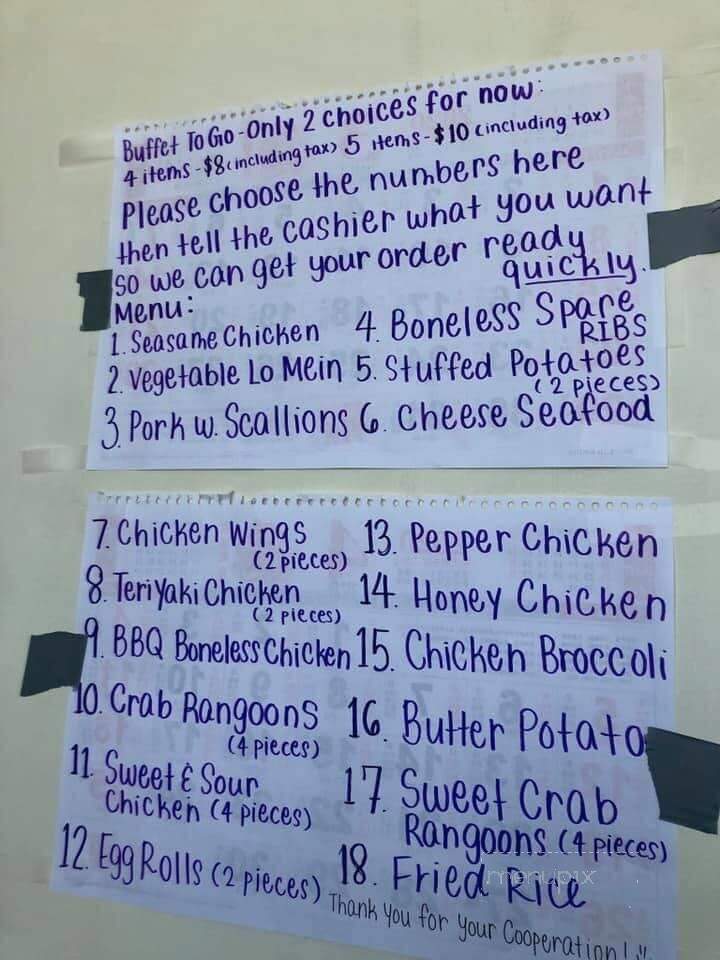 Buffet To Go - Only 2 choices for now:
4 items - $8 (including tax) 5 items - $10 (including tax)
Please choose the numbers here
then tell the cashier what you want
so we can get your order ready
quickly.
Menu:
1. Seasame Chicken
2. Vegetable Lo Mein
3. Pork w. Scallions
4. Boneless Spare
RIBS
5. Stuffed Potatoes
(2 pieces)
6. Cheese Seafood
7. Chicken Wings
(2 pieces)
8. Teriyaki Chicken
(2 pieces)
9. BBQ Boneless Chicken
10. Crab Rangoons
(4 pieces)
11. Sweet & Sour
Chicken (4 pieces)
12. Egg Rolls (2 pieces)
13. Pepper Chicken
14. Honey Chicken
15. Chicken Broccoli
16. Butter Potato
17. Sweet Crab
Rangoons (4 pieces)
18. Fried Rice
Thank you for your Cooperation!
menupix